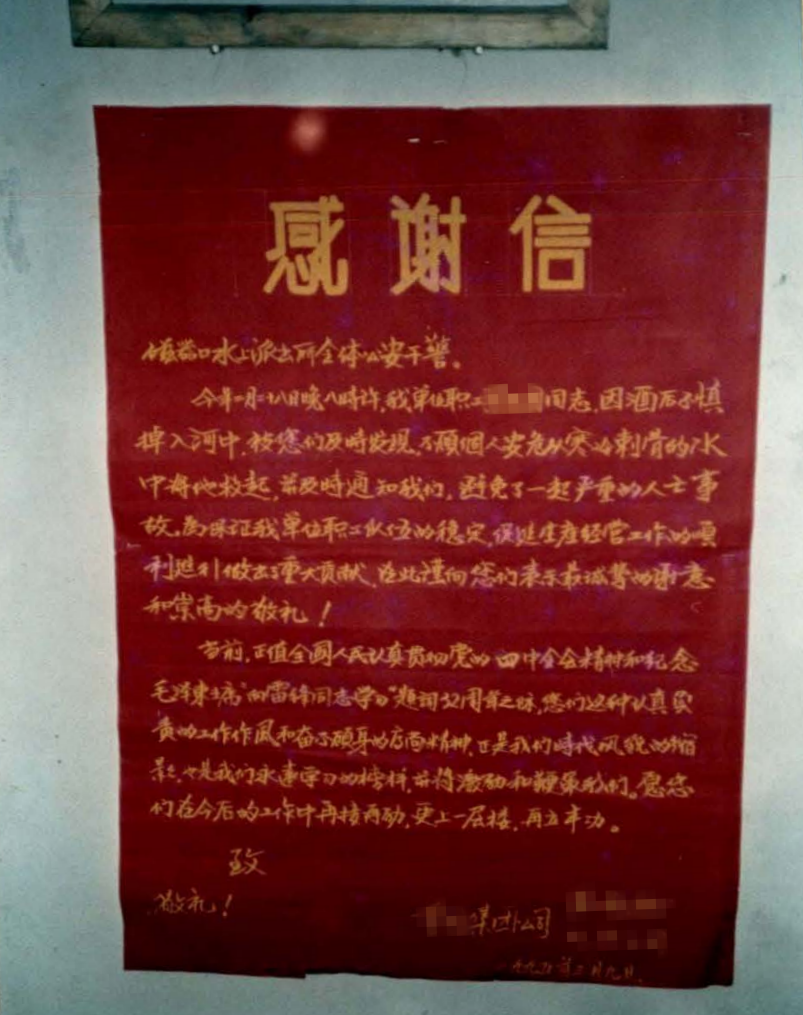 感谢信
磁器口水上派出所全体公安干警。
今年一月二十八日晚八時许,我单位职工同志,因酒后不慎
掉入河中,被您们及時发现,不顾個人安危从寒冷刺骨的水
中将他救起,并及時通知我们,避免了一起严重的人亡事
故。为保证我单位职工队伍的稳定,促进生産经营工作的顺
利进行做出了重大贡献,在此谨向您们表示最诚挚的谢意
和崇高的敬礼!
当前,正值全国人民认真贯彻党的四中全会精神和纪念
毛泽東主席"向雷锋同志学习"题词卅周年之际,您们这种认真负
责的工作作风和奋不顾身的高尚精神,正是我们時代风貌的缩
影,也是我们永远学习的榜样,并将激励和鞭策我们。愿您
们在今后的工作中再接再励,更上一层楼,再立丰功。
致
敬礼!
集团公司
一九九五年三月九日